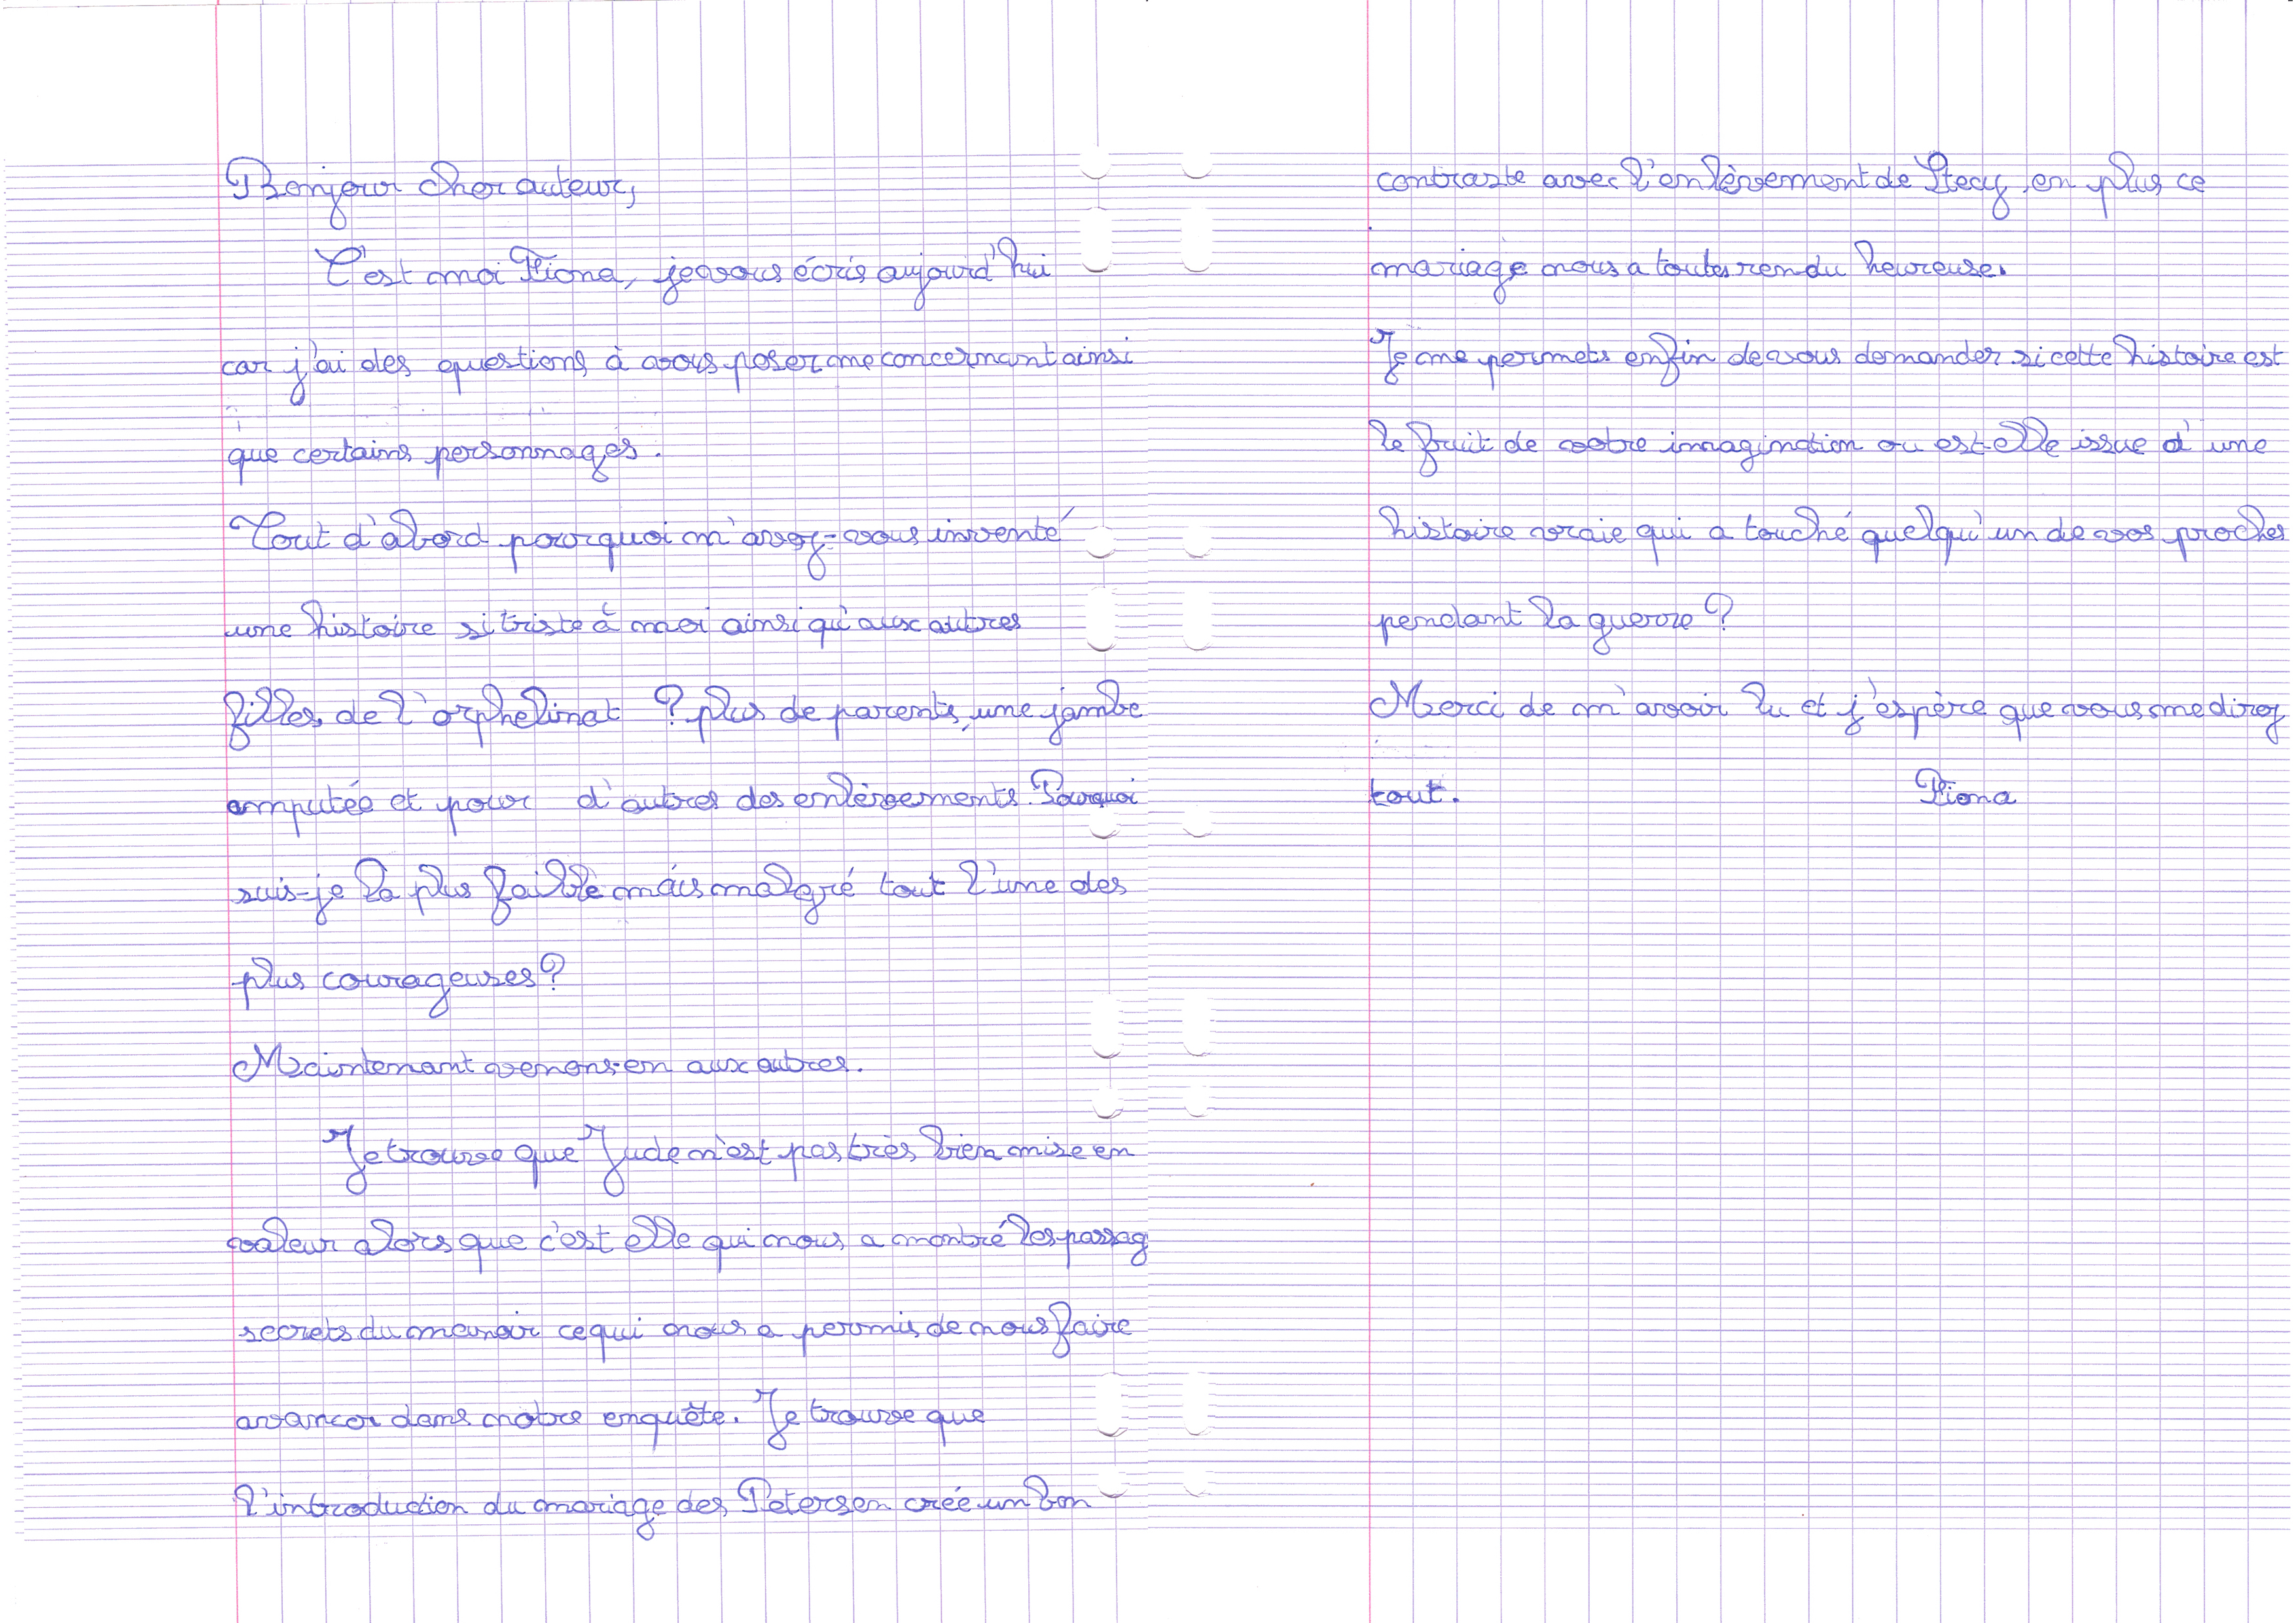 Bonjour cher auteur,
C'est moi Fiona, je vous écris aujourd'hui
car j'ai des questions à vous poser me concernant ainsi
que certains personnages.
Tout d'abord pourquoi m'avez-vous inventé
une histoire si triste à moi ainsi qu'aux autres
filles de l'orphelinat ? plus de parents, une jambe
amputée et pour d'autres des enlèvements. Pourquoi
suis-je la plus faible mais malgré tout l'une des
plus courageuses ?
Maintenant venons-en aux autres.
Je trouve que Jude n'est pas très bien mise en
valeur alors que c'est elle qui nous a montré les passag
secrets du manoir ce qui nous a permis de nous faire
avancer dans notre enquête. Je trouve que
l'introduction du mariage des Petersen crée un bon
contraste avec l'enlèvement de Stecy, en plus ce
mariage nous a toutes rendu heureuse.
Je me permets enfin de vous demander si cette histoire est
le fruit de votre imagination ou est-elle issue d'une
histoire vraie qui a touché quelqu'un de vos proches
pendant la guerre ?
Merci de m'avoir lu et j'espère que vous me direz
tout. Fiona